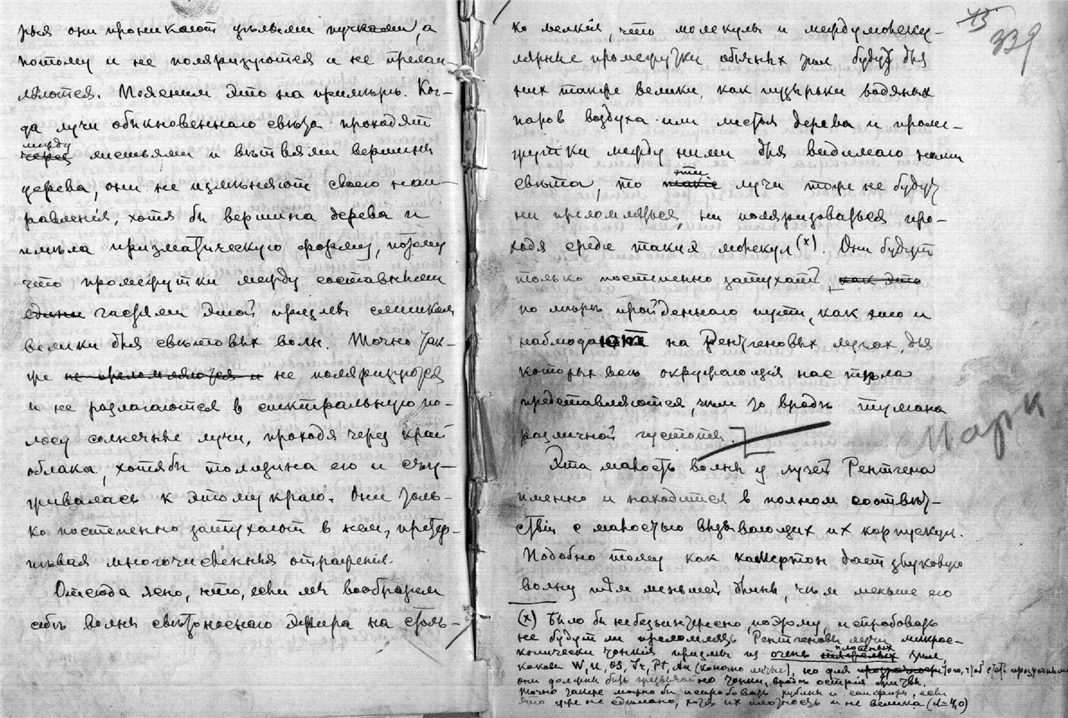 рыя они проникают цѣлыми пучками, а
потому и не поляризуются и не прелом
ляются. Поясним это на примѣрѣ. Ког-
да лучи обыкновеннаго свѣта проходят
между
через листьями и вѣтвями вершины
дерева, они не измѣняют своего нап-
равленія, хотя бы вершина дерева и
имѣла призматическую форму, потому
что промежутки между составными
едини частями этой призмы слишком
велики для свѣтовых волн. Точно так-
же не преломляются и не поляризуются
и не разлагаются в спектральную по-
лосу солнечные лучи, проходя через край
облака, хотя бы толщина его и съу-
живалась к этому краю. Они толь-
ко постепенно затухают в нем, претер-
пѣвая многочисленныя отраженія.
Отсюда ясно, что, если мы вообразим
себѣ волны свѣтоноснаго эфира на столь-
13
339
ко мелкія, что молекулы и междумолеку-
лярные промежутки обычных тѣл будут для
них также велики, как пузырьки водяных
паров воздуха или листья дерева и проме-
жутки между ними для видимаго нами
эти
свѣта, то такіе лучи тоже не будут
ни преломляться, ни поляризоваться про-
ходя среди таких молекул (x). Они будут
только постепенно затухать, как это
по мѣрѣ пройденнаго пути, как это и
наблюдают на Рентгеновых лучах, для
которых всѣ окружающія нас тѣла
представляются, чѣм то вродѣ тумана
различной густоты.
Марк
Эта малость волны у лучей Рентгена
именно и находится в полном соотвѣт-
ствіи с малостью вызывающих их корпускул.
Подобно тому как камертон дает звуковую
волну тѣм меньшей длины, чѣм меньше его
(x) Было бы небезынтересно поэтому, испробовать
не будут ли преломлять Рентгеновы лучи микрос-
копически тонкія призмы из очень плотных тѣл,
каковы W, U, Os, Ir, Pt, Au (конечно лучше), но для
они должны быть чрезвычайно тонки, вродѣ острія бритвы.
Точно также можно бы испробовать рубины и сапфиры, если
это уже не сдѣлано, хотя их плотность и не велика (d=4,0)